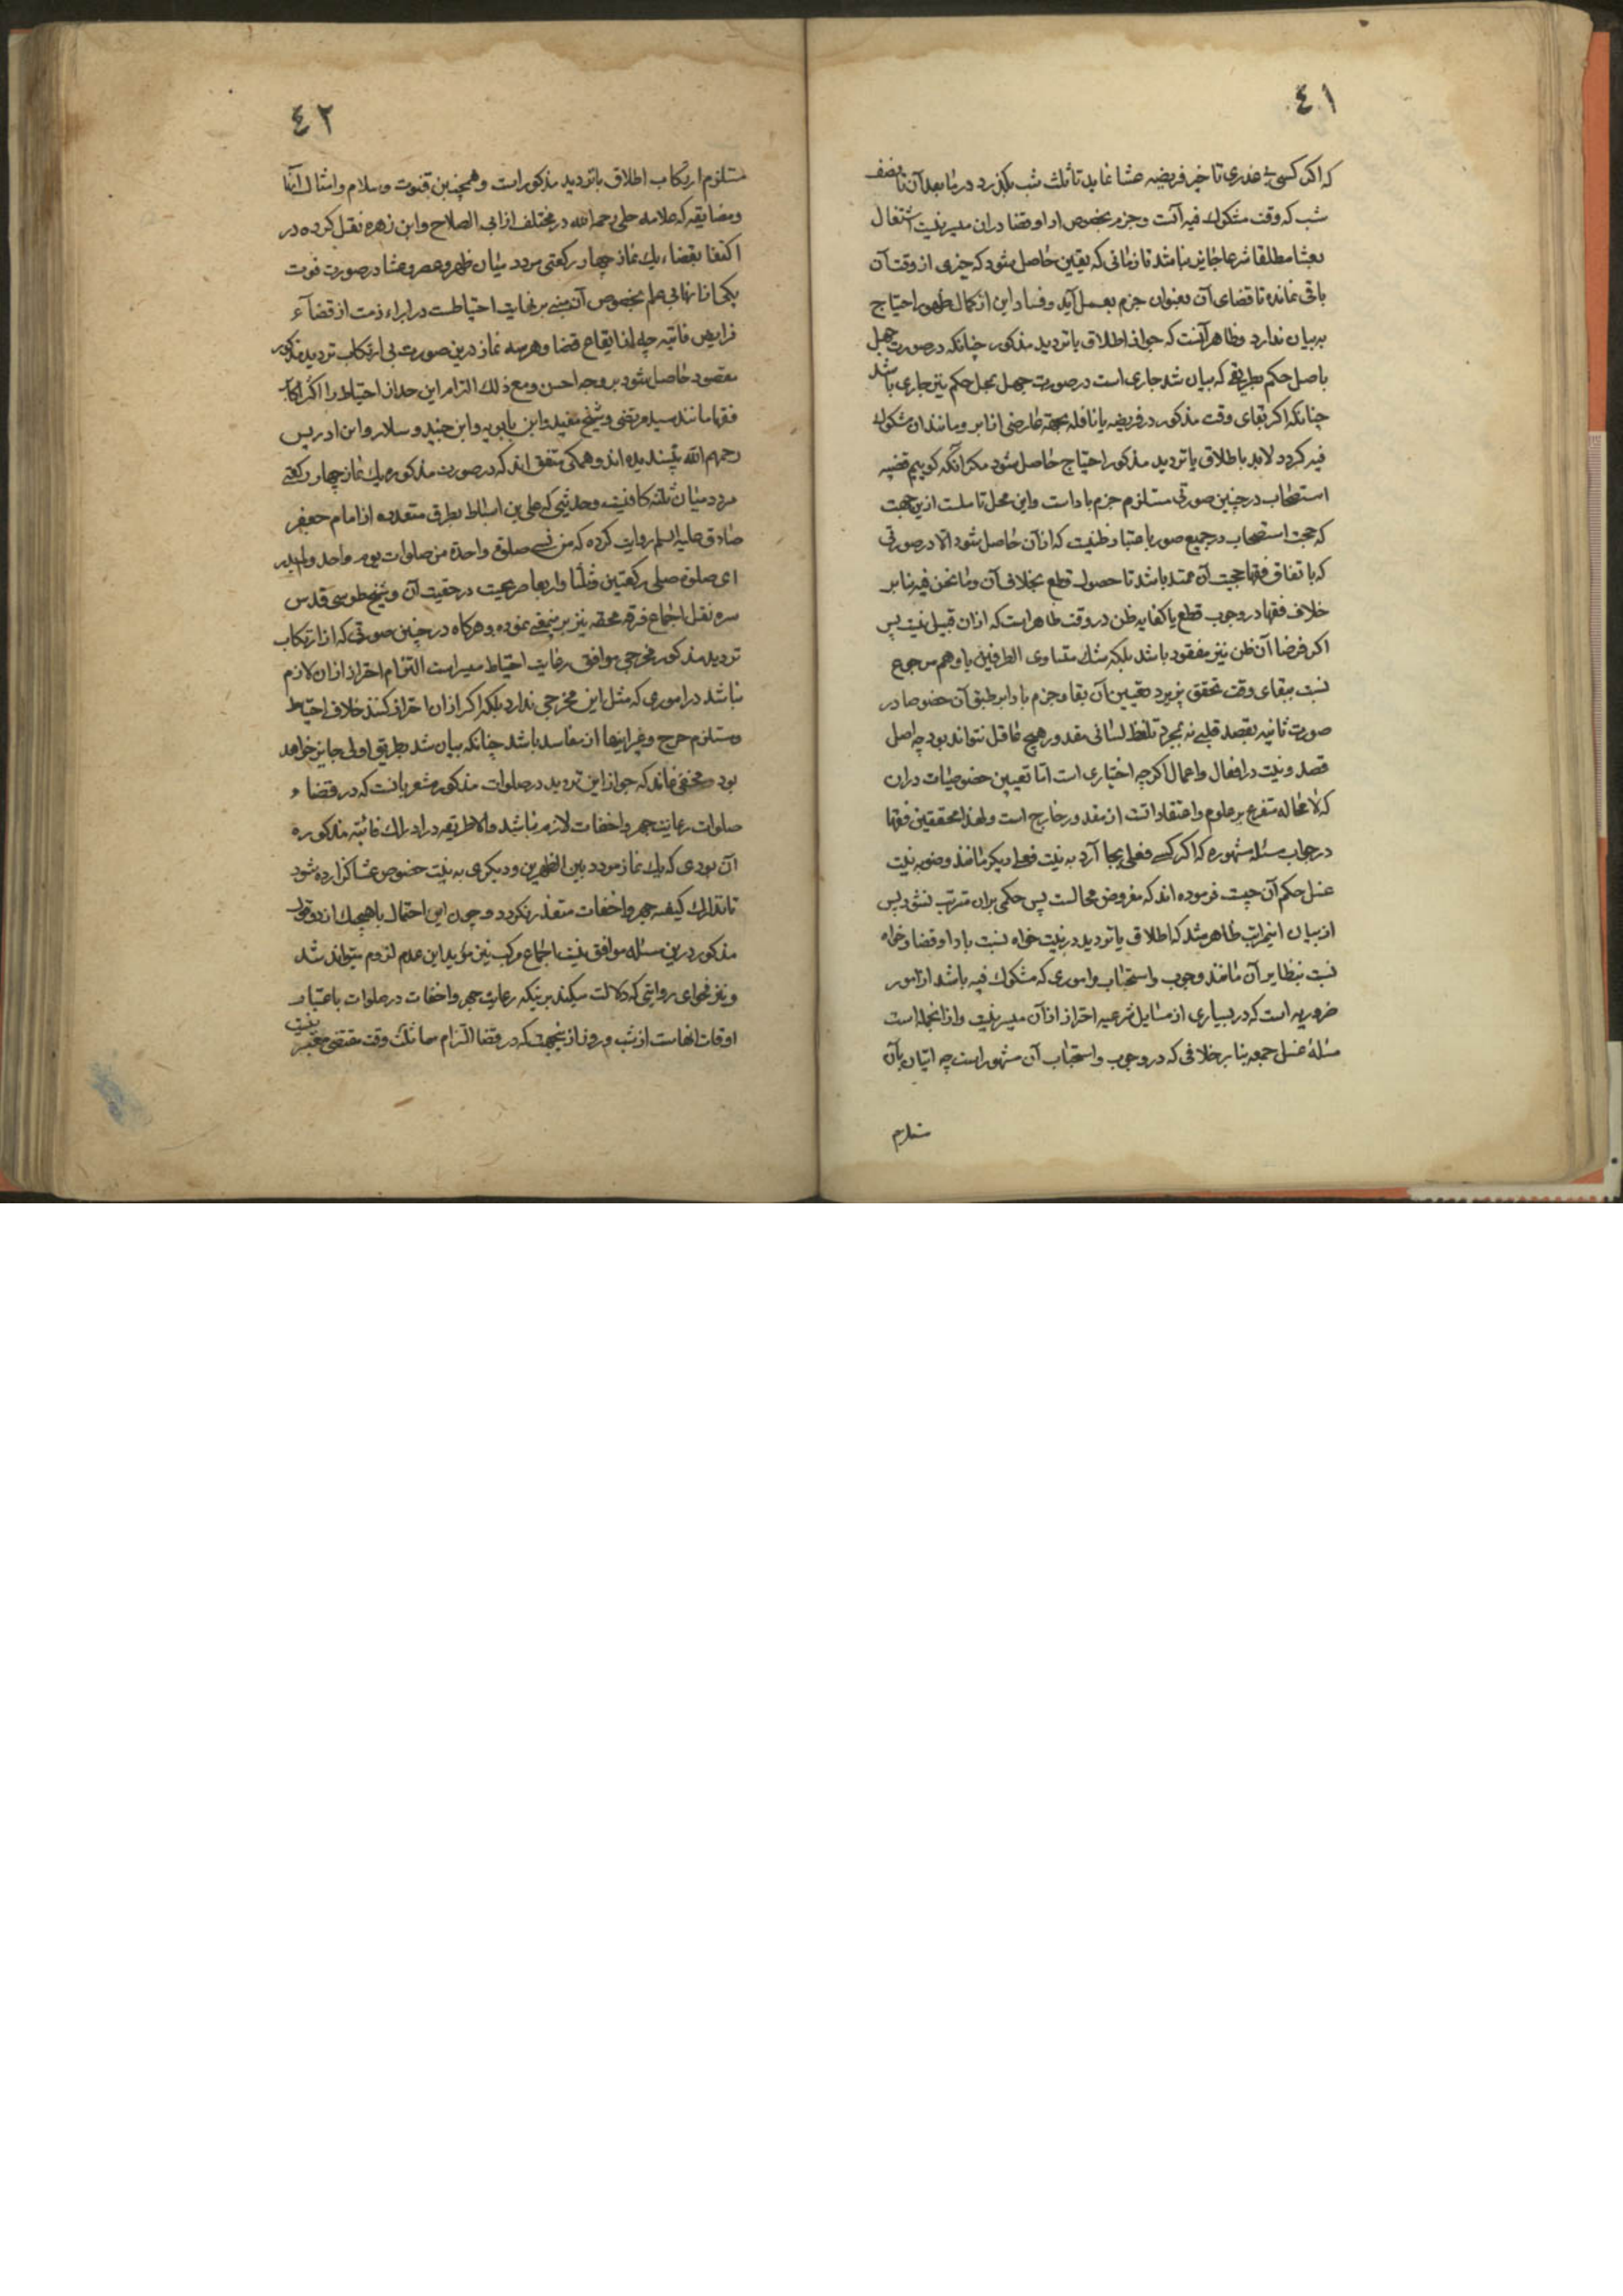 ٤١
که اکر کسی بی عذری تاخیر فریضه عشا نماید تا ثلث شب بگذرد در مابعد آن تا نصف
شب که وقت مشکوک فیه آنست و جزم بخصوص ادا و قضا در ان میسر نیست اشتغال
بعشا مطلقا شرعا جایز نباشد تا زمانی که یقین حاصل شود که جزءی از وقت آن
باقی نمانده تا قضای آن بعنوان جزم بعمل آید و فساد این از کمال ظهور احتیاج
ببیان ندارد و ظاهر آنست که جواز اطلاق یا تردید مذکور چنانکه در صورت جهل
باصل حکم بطریقی که بیان شد جاری است در صورت جهل بمحل حکم نیز جاری باشد
چنانکه اکر بقای وقت مذکور در فریضه یا نافله بجهة عارضی از ابر و مانند ان مشکوک
فیه کردد لابد باطلاق یا تردید مذکور احتیاج حاصل شود مکر آنکه کوییم قضیه
استصحاب در چنین صورتی مستلزم جزم باداست و این محل تاملست ازین جهت
که حجت استصحاب در جمیع صور باعتبار ظنیت که از آن حاصل شود الا در صورتی
که باتفاق فقها حجیت آن ممتد باشد تا حصول قطع بخلاف آن و ما نحن فیه بنابر
خلاف فقها در وجوب قطع یا اکتفا به ظن در وقت ظاهر است که ازان قبیل نیست پس
اکر فرضا آن ظن نیز مفقود باشد بلکه شک متساوی الطرفین یا وهم مرجوح
نسبت ببقای وقت تحقق پزیرد تعیین آن بقا و جزم بادا بر طبق آن خصوصا در
صورت ثانیه بقصد قلبی نه بمجرد تلفظ لسانی مقدور هیچ عاقل نتواند بود چه اصل
قصد و نیت در افعال و اعمال اکرچه اختیاری است اما تعیین خصوصیات دران
که لا محاله متفرع بر علوم و اعتقاداتست از مقدور خارج است و لهذا محققین فقها
در جواب مسئله مشهوره که اکر کسی فعلی بجا آرد به نیت فعل دیکر مانند وضو به نیت
غسل حکم آن چیست فرموده اند که مفروض محالست پس حکمی بران مترتب نشود پس
از بیان این مراتب ظاهر شد که اطلاق یا تردید در نیت خواه نسبت بادا و قضا و خواه
نسبت بنظایر آن مانند وجوب و استحباب و اموری که مشکوک فیه باشد از امور
ضروریه است که در بسیاری از مسایل شرعیه احتراز از آن میسر نیست و از انجمله است
مسئله غسل جمعه بنا بر خلافی که در وجوب و استحباب آن مشهور است چه اتیان بآن
مستلزم
٤٢
مستلزم ارتکاب اطلاق یا تردید مذکور است و همچنین قنوت و سلام و امثال آنها
و مضایقه که علامه حلی رحمه الله در مختلف از ابی الصلاح و ابن زهره نقل کرده در
اکتفا بقضاء یک نماز چهار رکعتی مردد میان ظهر و عصر و عشا در صورت فوت
یکی از انها بی علم بخصوص آن مبنی بر نهایت احتیاطست در ابراء ذمت از قضآء
فرایض فائته چه از ایقاع قضا و هر سه نماز درین صورت بی ارتکاب تردید مذکور
مقصود حاصل شود بر وجه احسن و مع ذلک التزام این حد از احتیاط را اکثر اکابر
فقها مانند سید مرتضی و شیخ مفید و ابن بابویه و ابن جنید و سلار و ابن ادریس
رحمهم الله نپسندیده اند و همکی متفق اند که در صورت مذکوره یک نماز چهار رکعتی
مردد میان ثلثه کافیست و حدیثی که علی بن اسباط بطرق متعدده از امام جعفر
صادق علیه السلم روایت کرده که من نسی صلوة واحدة من صلوات یوم واحد ولم یدر
ای صلوة صلی رکعتین و ثلثا و اربعا صریحیت در حقیت آن و شیخ طوسی قدس
سره نقل اجماع فرقه محقه نیز برینمعنی نموده و هرکاه در چنین صورتی که از ارتکاب
تردید مذکور مخرجی موافق رعایت احتیاط میسر است التزام احتراز ازان لازم
نباشد در اموری که مثل این مخرجی ندارد بلکه اکر ازان احتراز کنند خلاف احتیاط
و مستلزم حرج و غیر اینها از مفاسد باشد چنانکه بیان شد بطریق اولی جایز خواهد
بود مخفی نماند که جواز این تردید در صلوات مذکوره مشعر بانست که در قضاء
صلوات رعایت جهر و اخفات لازم نباشد والا طریقه در ادراک فائته مذکوره
آن بودی که یک نماز مردد بین الظهرین و دیکری به نیت خصوص عشا کزارده شود
تا تدارک کیفیه جهر و اخفات متعذر نکردد و چون این احتمال با هیچیک از دو قول
مذکور درین مسئله موافق نیست اجماع مرکب نیز مؤید این عدم لزوم میتواند شد
و نیز فحوای روایتی که دلالت میکند برینکه رعایت جهر و اخفات در صلوات باعتبار
اوقات انهاست از شب و روز ازینجهت که در قضا التزام مماثلت وقت مقتضی معتبر نیست